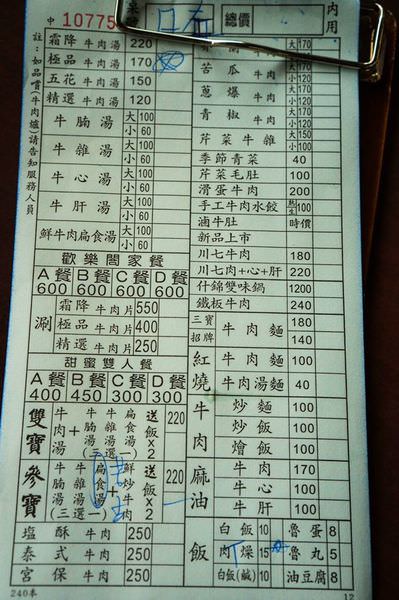 中 10775
總價
內用
註：如品嘗(牛肉爐)請告知服務人員
霜降 牛肉湯 220
極品 牛肉湯 170
五花 牛肉湯 150
精選 牛肉湯 120
牛腩湯 大100 小60
牛雜湯 大100 小60
牛心湯 大100 小60
牛肝湯 大100 小60
鮮牛肉扁食湯 大100 小60
歡樂闔家餐
A餐 B餐 C餐 D餐
600 600 600 600
涮
霜降 牛肉片 550
極品 牛肉片 400
精選 牛肉片 250
甜蜜雙人餐
A餐 B餐 C餐 D餐
400 450 300 300
雙寶 牛肉湯 + 牛雜湯 牛腩湯 扁食湯 (三選一) 送飯x2 220
參寶 牛肉湯 牛雜湯 牛腩湯 扁食湯 (三選一) + 鮮炒牛肉 送飯x2 220
塩酥 牛肉 250
泰式 牛肉 250
宮保 牛肉 250
240本
牛肉 大170 小120
苦瓜 牛肉 大170 小120
蔥爆 牛肉 大170 小120
青椒 牛肉 大170 小120
芹菜牛雜 大150 小100
季節青菜 40
芹菜毛肚 100
滑蛋牛肉 200
手工牛肉水餃 100
滷牛肚 時價
新品上市
川七牛肉 180
川七牛肉+心+肝 220
什錦雙味鍋 1200
鐵板牛肉 240
三寶 牛肉麵 180
招牌 牛肉麵 140
紅燒 牛肉麵 100
牛肉湯麵 40
牛肉 炒麵 100
炒飯 100
燴飯 100
麻油 牛肉 170
牛心 100
牛肝 100
飯
白飯 10 魯蛋 8
肉燥 15 魯丸 5
白飯(鹹) 10 油豆腐 8
12